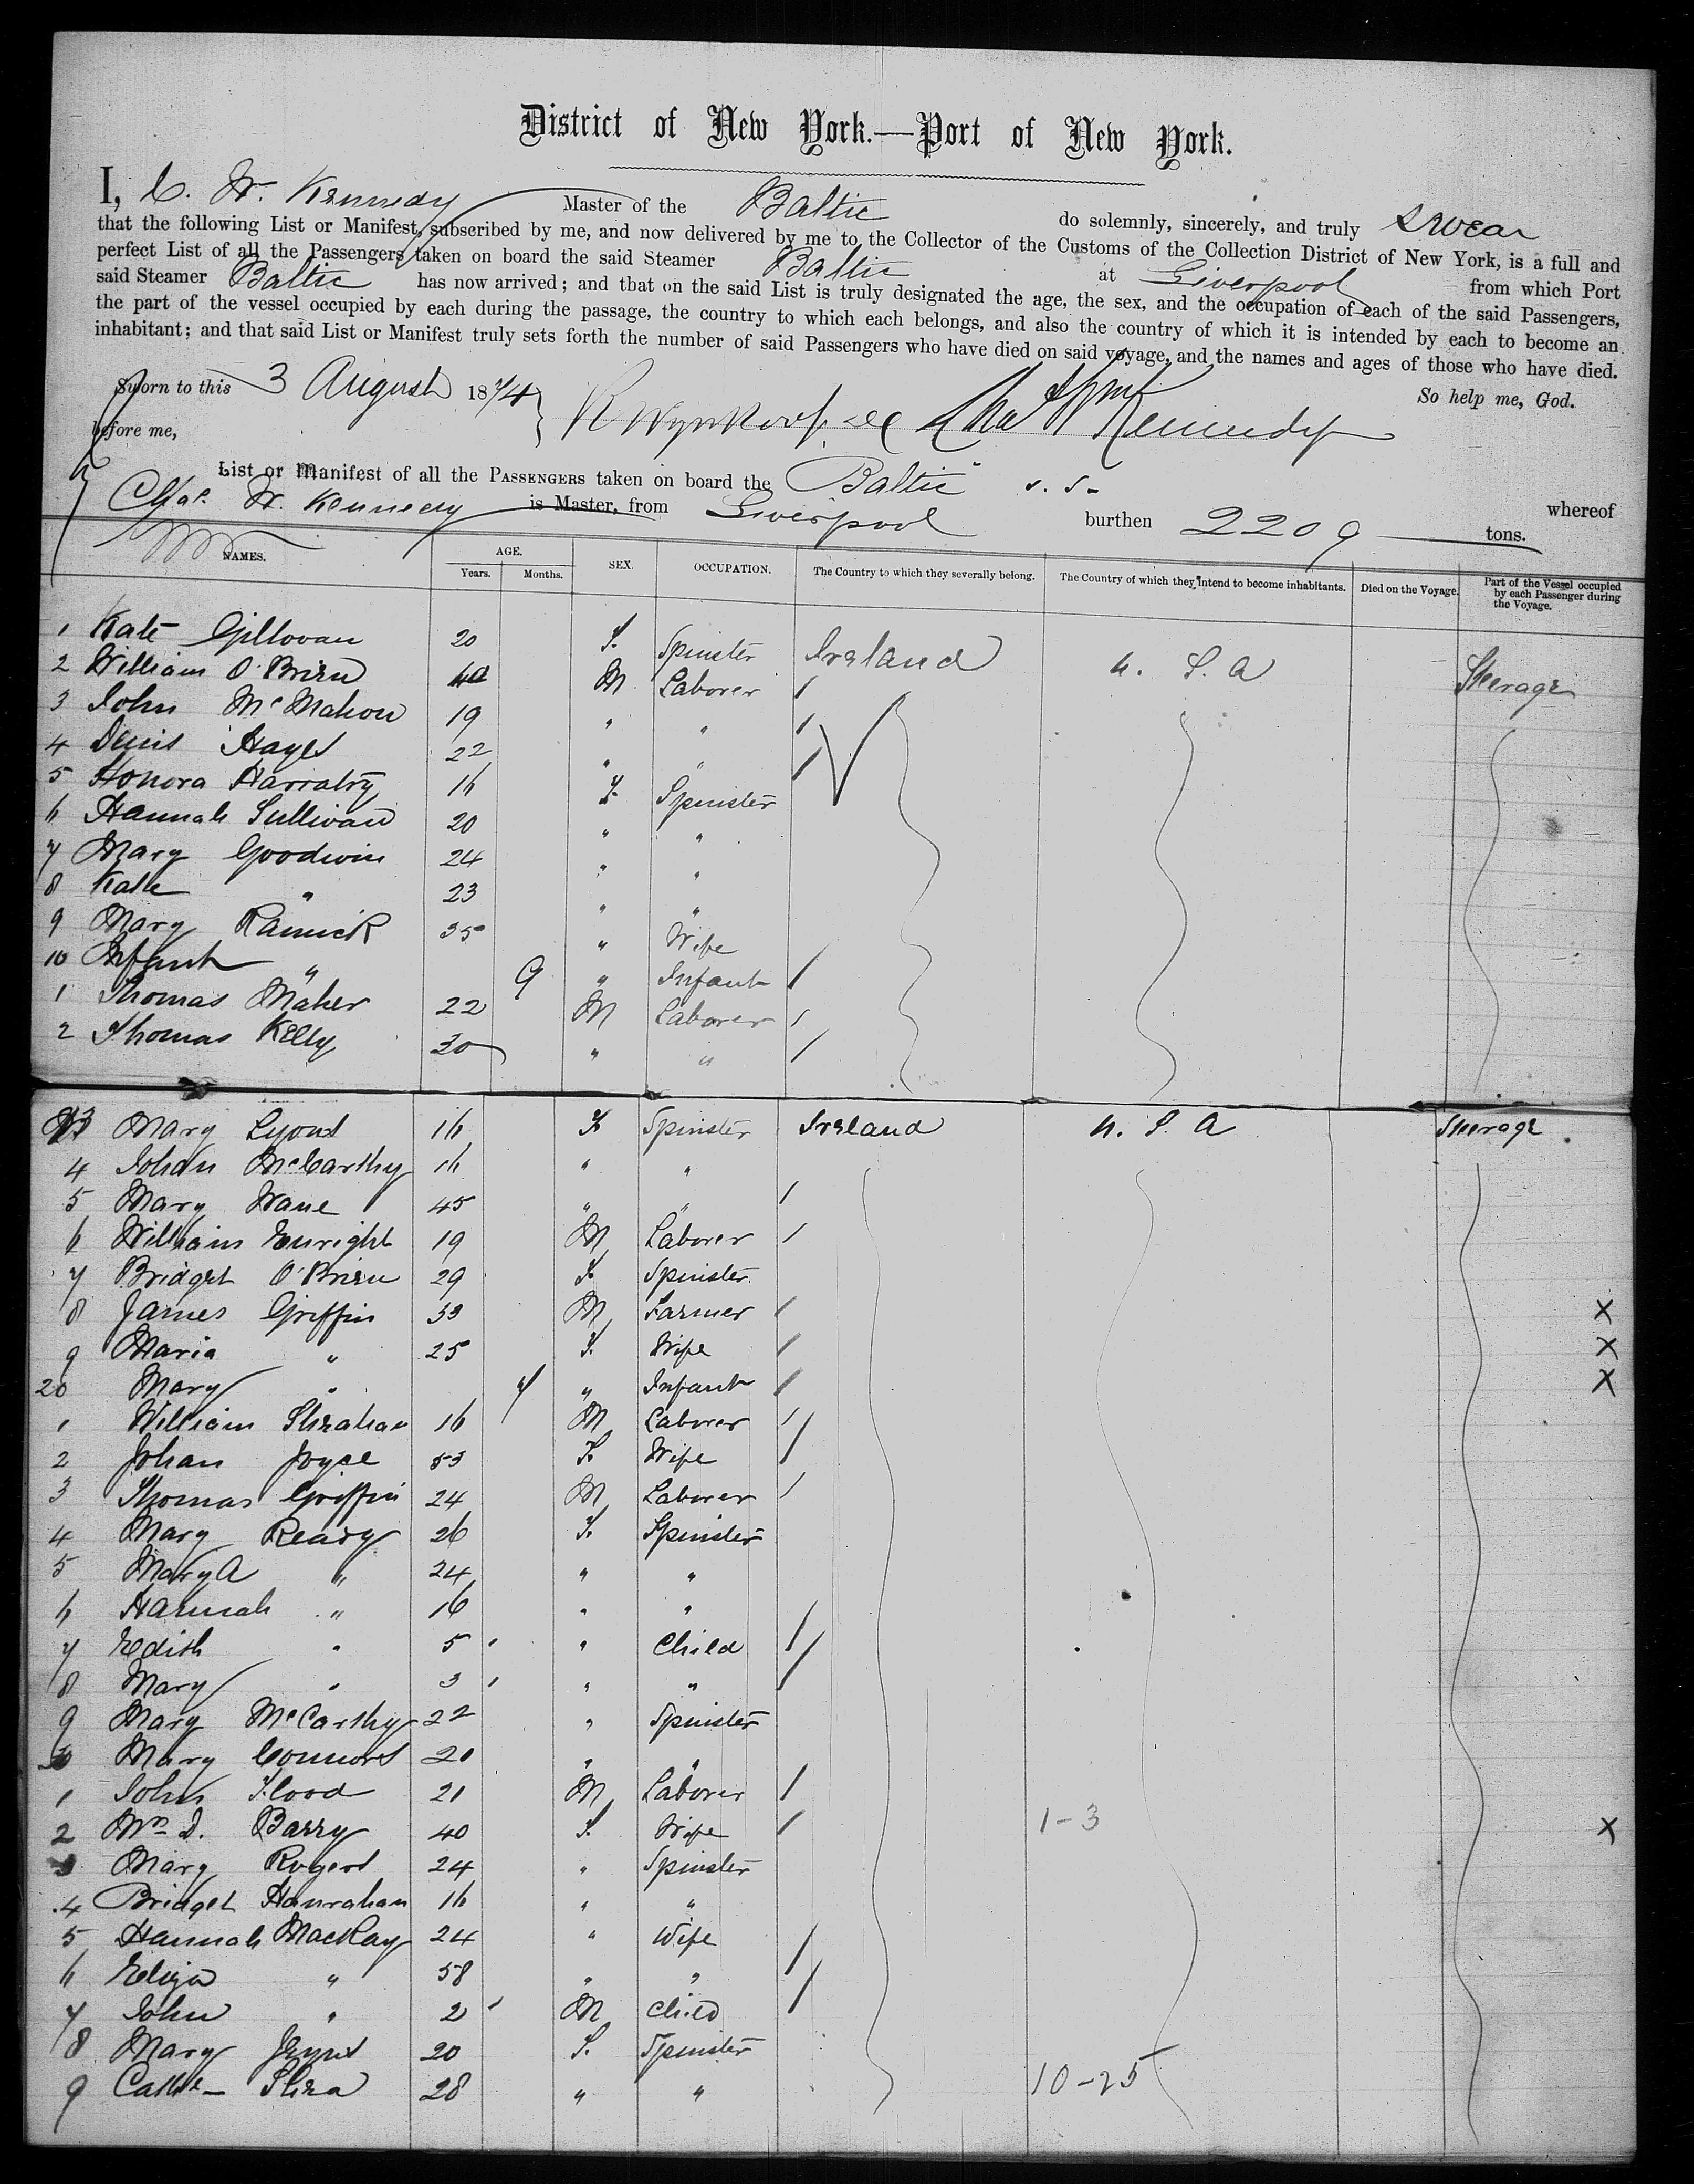 District of New York.—Port of New York.
I, C. W. Kennedy Master of the Baltic do solemnly, sincerely, and truly swear
that the following List or Manifest, subscribed by me, and now delivered by me to the Collector of the Customs of the Collection District of New York, is a full and
perfect List of all the Passengers taken on board the said Steamer Baltic at Liverpool from which Port
said Steamer Baltic has now arrived; and that on the said List is truly designated the age, the sex, and the occupation of each of the said Passengers,
the part of the vessel occupied by each during the passage, the country to which each belongs, and also the country of which it is intended by each to become an
inhabitant; and that said List or Manifest truly sets forth the number of said Passengers who have died on said voyage, and the names and ages of those who have died.
So help me, God.
Sworn to this 3 August 1874
before me,
List or Manifest of all the PASSENGERS taken on board the Baltic s.s. whereof
Chas. W. Kennedy is Master, from Liverpool burthen 2209 tons.
NAMES. AGE. SEX. OCCUPATION. The Country to which they severally belong. The Country of which they intend to become inhabitants. Died on the Voyage. Part of the Vessel occupied by each Passenger during the Voyage.
Years. Months.
1 Kate 20 F. Spinster Ireland U. S. A Steerage
2 William O'Brien M Laborer
3 John McMahon 19 " "
4 Denis Hayes 22 " "
5 Honora 16 F. Spinster
6 Hannah Sullivan 20 " "
7 Mary Goodwin 24 " "
8 Kate " 23 " "
9 Mary 35 " Wife
10 Infant " 9 " Infant
1 Thomas Maher 22 M Laborer
2 Thomas Kelly 30 " "
13 Mary Lyons 16 F. Spinster Ireland U. S. A Steerage
4 Johan McCarthy 16 " "
5 Mary Wane 45 " "
6 William Enright 19 M Laborer
7 Bridget O'Brien 29 F. Spinster
8 James Griffin 33 M Farmer X
9 Maria " 25 F. Wife X
20 Mary " 7 " Infant X
1 William Sheahan 16 M Laborer
2 Johan Joyce 53 F. Wife
3 Thomas Griffin 24 M Laborer
4 Mary Ready 26 F. Spinster
5 Mary A " 24 " "
6 Hannah " 16 " "
7 Edith " 5 " Child
8 Mary " 3 " "
9 Mary McCarthy 22 " Spinster
30 Mary Connors 20 " "
1 John Flood 21 M Laborer
2 D. Barry 40 F. Wife 1-3 X
3 Mary Rogers 24 " Spinster
4 Bridget Hanrahan 16 " "
5 Hannah MacKay 24 " Wife
6 Eliza " 58 " "
7 John " 2 M Child
8 Mary 20 F. Spinster
9 Cathe Shea 28 " " 10-25